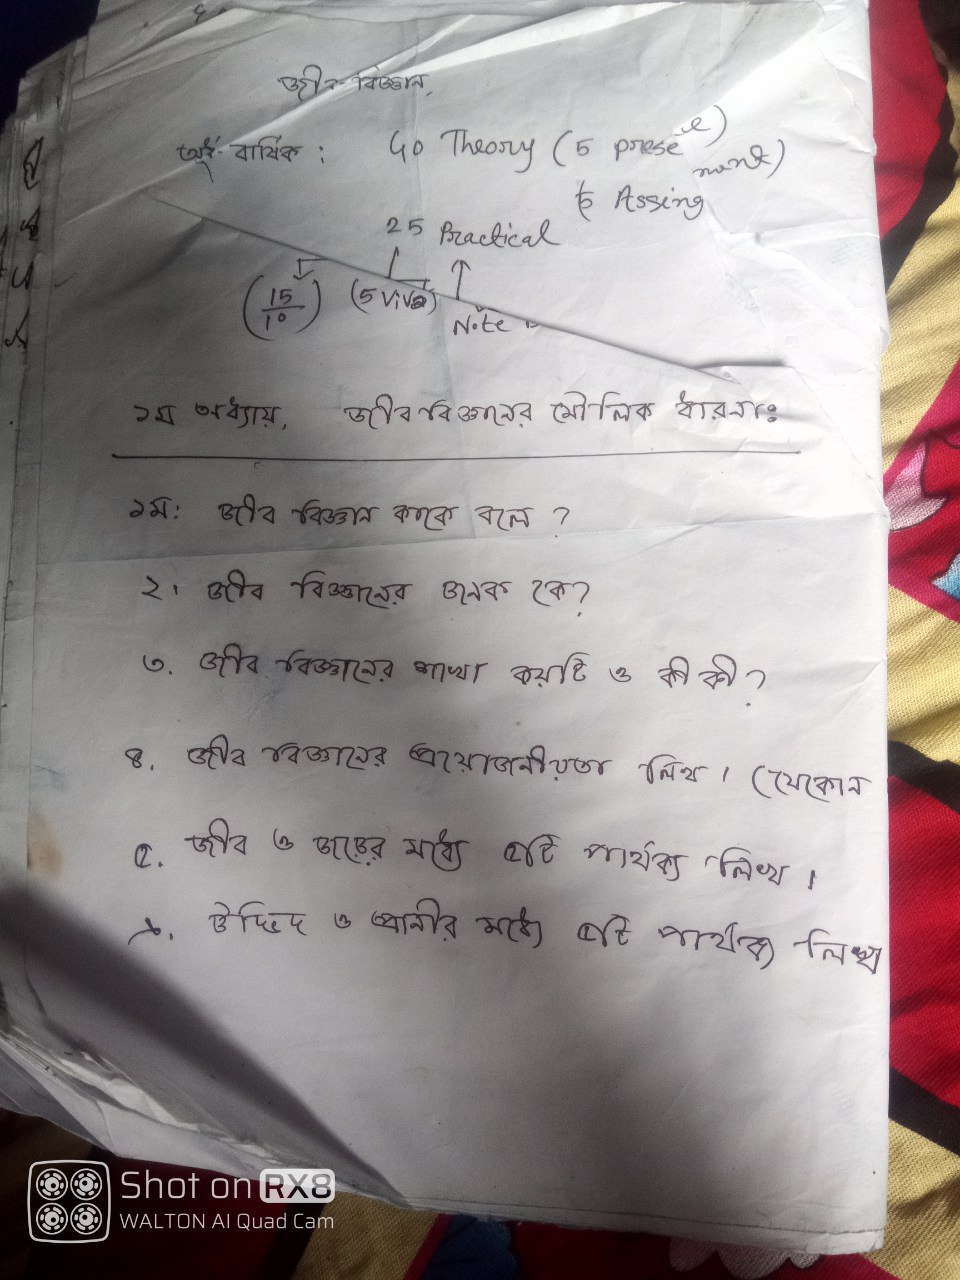 জীব বিজ্ঞান,
অর্ধ-বার্ষিক : 60 Theory (5 prese
5 Assing ment)
25 Practical
(15/10) (5 Viva) Note
১ম অধ্যায়, জীব বিজ্ঞানের মৌলিক ধারনাঃ
১মঃ জীব বিজ্ঞান কাকে বলে ?
২। জীব বিজ্ঞানের জনক কে?
৩. জীব বিজ্ঞানের শাখা কয়টি ও কী কী ?
৪. জীব বিজ্ঞানের প্রয়োজনীয়তা লিখ । (যেকোন
৫. জীব ও জড়ের মধ্যে ৫টি পার্থক্য লিখ ।
৬. উদ্ভিদ ও প্রানীর মধ্যে ৫টি পার্থক্য লিখ
Shot on RX8
WALTON AI Quad Cam